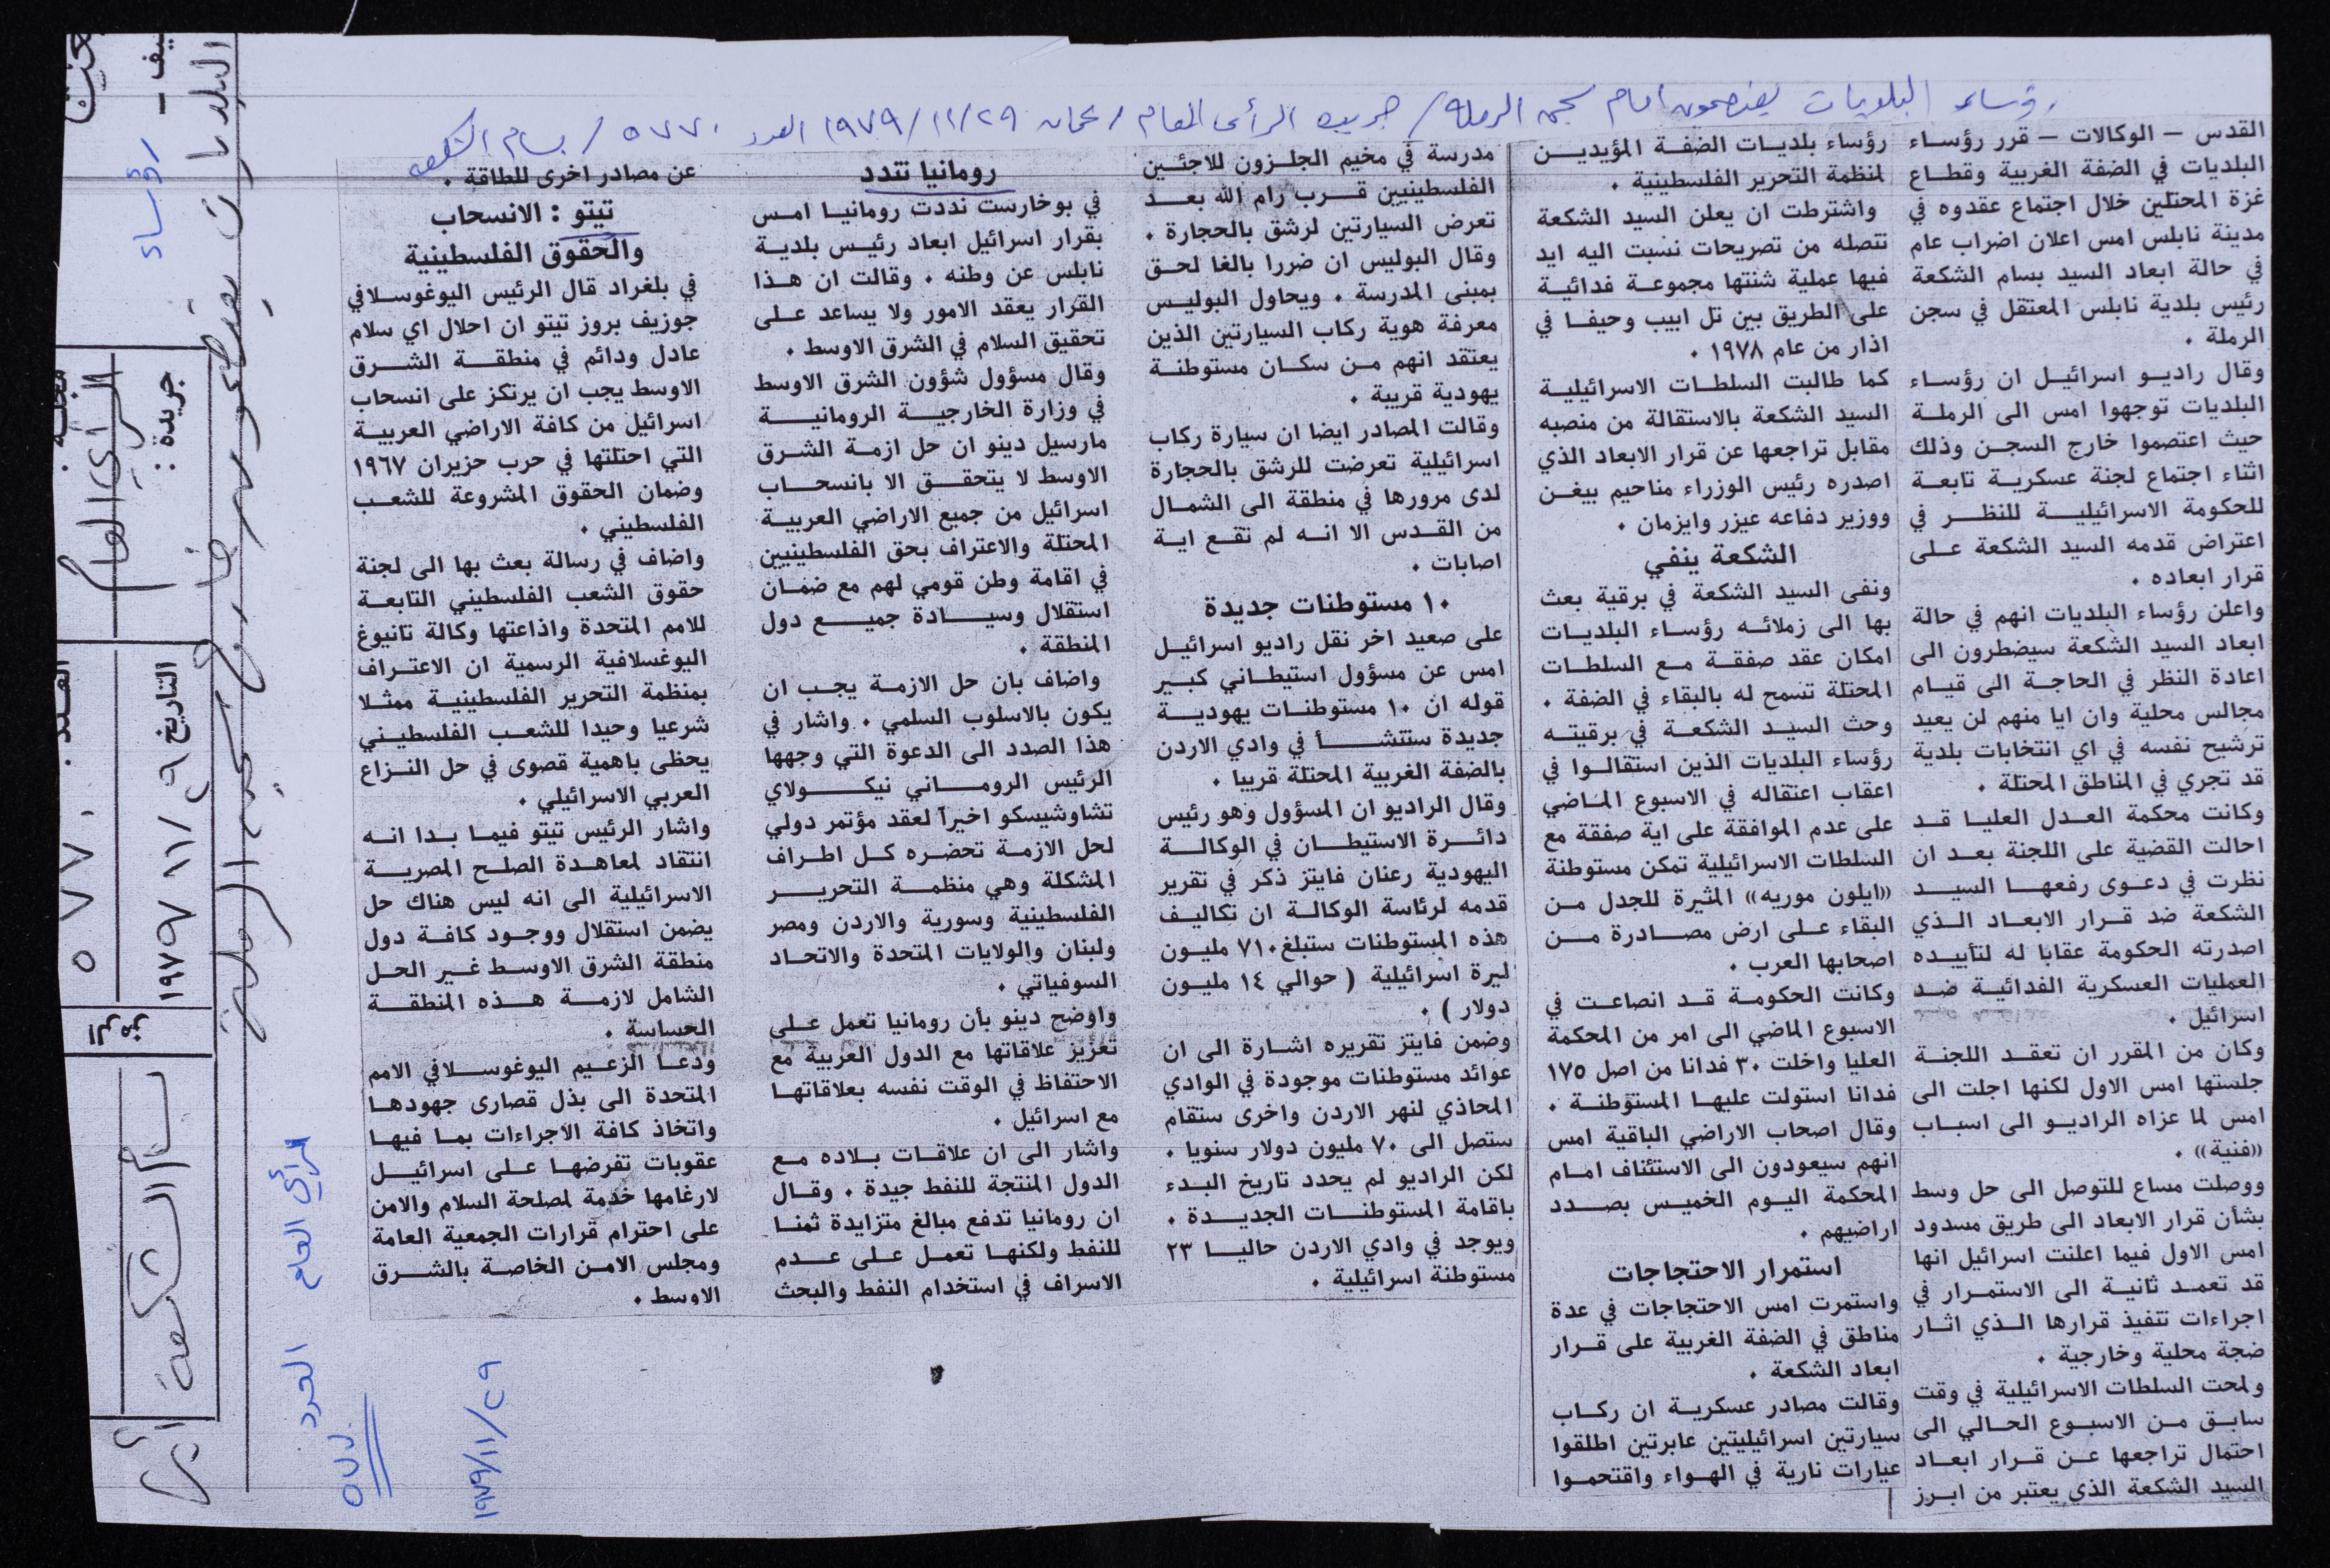 رؤساء البلديات يعتصمون امام سجن الرملة / جريدة الرأى العام / عمان ٢٩/١١/١٩٧٩ العدد ٥٧٧٠ / بسام الشكعه
القدس — الوكالات — قرر رؤساء
البلديات في الضفة الغربية وقطاع
غزة المحتلين خلال اجتماع عقدوه في
مدينة نابلس امس اعلان اضراب عام
في حالة ابعاد السيد بسام الشكعة
رئيس بلدية نابلس المعتقل في سجن
الرملة .
وقال راديو اسرائيل ان رؤساء
البلديات توجهوا امس الى الرملة
حيث اعتصموا خارج السجن وذلك
اثناء اجتماع لجنة عسكرية تابعة
للحكومة الاسرائيلية للنظر في
اعتراض قدمه السيد الشكعة على
قرار ابعاده .
واعلن رؤساء البلديات انهم في حالة
ابعاد السيد الشكعة سيضطرون الى
اعادة النظر في الحاجة الى قيام
مجالس محلية وان ايا منهم لن يعيد
ترشيح نفسه في اي انتخابات بلدية
قد تجري في المناطق المحتلة .
وكانت محكمة العدل العليا قد
احالت القضية على اللجنة بعد ان
نظرت في دعوى رفعها السيد
الشكعة ضد قرار الابعاد الذي
اصدرته الحكومة عقابا له لتأييده
العمليات العسكرية الفدائية ضد
اسرائيل .
وكان من المقرر ان تعقد اللجنة
جلستها امس الاول لكنها اجلت الى
امس لما عزاه الراديو الى اسباب
«فنية» .
ووصلت مساع للتوصل الى حل وسط
بشأن قرار الابعاد الى طريق مسدود
امس الاول فيما اعلنت اسرائيل انها
قد تعمد ثانية الى الاستمرار في
اجراءات تنفيذ قرارها الذي اثار
ضجة محلية وخارجية .
ولمحت السلطات الاسرائيلية في وقت
سابق من الاسبوع الحالي الى
احتمال تراجعها عن قرار ابعاد
السيد الشكعة الذي يعتبر من ابرز
رؤساء بلديات الضفة المؤيدين
لمنظمة التحرير الفلسطينية .
واشترطت ان يعلن السيد الشكعة
تنصله من تصريحات نسبت اليه ايد
فيها عملية شنتها مجموعة فدائية
على الطريق بين تل ابيب وحيفا في
اذار من عام ١٩٧٨ .
كما طالبت السلطات الاسرائيلية
السيد الشكعة بالاستقالة من منصبه
مقابل تراجعها عن قرار الابعاد الذي
اصدره رئيس الوزراء مناحيم بيغن
ووزير دفاعه عيزر وايزمان .
الشكعة ينفي
ونفى السيد الشكعة في برقية بعث
بها الى زملائه رؤساء البلديات
امكان عقد صفقة مع السلطات
المحتلة تسمح له بالبقاء في الضفة .
وحث السيد الشكعة في برقيته
رؤساء البلديات الذين استقالوا في
اعقاب اعتقاله في الاسبوع الماضي
على عدم الموافقة على اية صفقة مع
السلطات الاسرائيلية تمكن مستوطنة
«ايلون موريه» المثيرة للجدل من
البقاء على ارض مصادرة من
اصحابها العرب .
وكانت الحكومة قد انصاعت في
الاسبوع الماضي الى امر من المحكمة
العليا واخلت ٣٠ فدانا من اصل ١٧٥
فدانا استولت عليها المستوطنة .
وقال اصحاب الاراضي الباقية امس
انهم سيعودون الى الاستئناف امام
المحكمة اليوم الخميس بصدد
اراضيهم .
استمرار الاحتجاجات
واستمرت امس الاحتجاجات في عدة
مناطق في الضفة الغربية على قرار
ابعاد الشكعة .
وقالت مصادر عسكرية ان ركاب
سيارتين اسرائيليتين عابرتين اطلقوا
عيارات نارية في الهواء واقتحموا
مدرسة في مخيم الجلزون للاجئين
الفلسطينيين قرب رام الله بعد
تعرض السيارتين لرشق بالحجارة .
وقال البوليس ان ضررا بالغا لحق
بمبنى المدرسة . ويحاول البوليس
معرفة هوية ركاب السيارتين الذين
يعتقد انهم من سكان مستوطنة
يهودية قريبة .
وقالت المصادر ايضا ان سيارة ركاب
اسرائيلية تعرضت للرشق بالحجارة
لدى مرورها في منطقة الى الشمال
من القدس الا انه لم تقع اية
اصابات .
١٠ مستوطنات جديدة
على صعيد اخر نقل راديو اسرائيل
امس عن مسؤول استيطاني كبير
قوله ان ١٠ مستوطنات يهودية
جديدة ستنشأ في وادي الاردن
بالضفة الغربية المحتلة قريبا .
وقال الراديو ان المسؤول وهو رئيس
دائرة الاستيطان في الوكالة
اليهودية رعنان فايتز ذكر في تقرير
قدمه لرئاسة الوكالة ان تكاليف
هذه المستوطنات ستبلغ ٧١٠ مليون
ليرة اسرائيلية ( حوالي ١٤ مليون
دولار ) .
وضمن فايتز تقريره اشارة الى ان
عوائد مستوطنات موجودة في الوادي
المحاذي لنهر الاردن واخرى ستقام
ستصل الى ٧٠ مليون دولار سنويا .
لكن الراديو لم يحدد تاريخ البدء
باقامة المستوطنات الجديدة .
ويوجد في وادي الاردن حاليا ٢٣
مستوطنة اسرائيلية .
رومانيا تندد
في بوخارست نددت رومانيا امس
بقرار اسرائيل ابعاد رئيس بلدية
نابلس عن وطنه . وقالت ان هذا
القرار يعقد الامور ولا يساعد على
تحقيق السلام في الشرق الاوسط .
وقال مسؤول شؤون الشرق الاوسط
في وزارة الخارجية الرومانية
مارسيل دينو ان حل ازمة الشرق
الاوسط لا يتحقق الا بانسحاب
اسرائيل من جميع الاراضي العربية
المحتلة والاعتراف بحق الفلسطينيين
في اقامة وطن قومي لهم مع ضمان
استقلال وسيادة جميع دول
المنطقة .
واضاف بان حل الازمة يجب ان
يكون بالاسلوب السلمي . واشار في
هذا الصدد الى الدعوة التي وجهها
الرئيس الروماني نيكولاي
تشاوشيسكو اخيرآ لعقد مؤتمر دولي
لحل الازمة تحضره كل اطراف
المشكلة وهي منظمة التحرير
الفلسطينية وسورية والاردن ومصر
ولبنان والولايات المتحدة والاتحاد
السوفياتي .
واوضح دينو بأن رومانيا تعمل على
تعزيز علاقاتها مع الدول العربية مع
الاحتفاظ في الوقت نفسه بعلاقاتها
مع اسرائيل .
واشار الى ان علاقات بلاده مع
الدول المنتجة للنفط جيدة . وقال
ان رومانيا تدفع مبالغ متزايدة ثمنا
للنفط ولكنها تعمل على عدم
الاسراف في استخدام النفط والبحث
عن مصادر اخرى للطاقة .
تيتو : الانسحاب
والحقوق الفلسطينية
في بلغراد قال الرئيس اليوغوسلافي
جوزيف بروز تيتو ان احلال اي سلام
عادل ودائم في منطقة الشرق
الاوسط يجب ان يرتكز على انسحاب
اسرائيل من كافة الاراضي العربية
التي احتلتها في حرب حزيران ١٩٦٧
وضمان الحقوق المشروعة للشعب
الفلسطيني .
واضاف في رسالة بعث بها الى لجنة
حقوق الشعب الفلسطيني التابعة
للامم المتحدة واذاعتها وكالة تانيوغ
اليوغسلافية الرسمية ان الاعتراف
بمنظمة التحرير الفلسطينية ممثلا
شرعيا وحيدا للشعب الفلسطيني
يحظى باهمية قصوى في حل النزاع
العربي الاسرائيلي .
واشار الرئيس تيتو فيما بدا انه
انتقاد لمعاهدة الصلح المصرية
الاسرائيلية الى انه ليس هناك حل
يضمن استقلال ووجود كافة دول
منطقة الشرق الاوسط غير الحل
الشامل لازمة هذه المنطقة
الحساسة .
ودعا الزعيم اليوغوسلافي الامم
المتحدة الى بذل قصارى جهودها
واتخاذ كافة الاجراءات بما فيها
عقوبات تفرضها على اسرائيل
لارغامها خدمة لمصلحة السلام والامن
على احترام قرارات الجمعية العامة
ومجلس الامن الخاصة بالشرق
الاوسط .
رؤساء
البلديات يعتصمون خارج سجن الرملة
جريدة :
مجلة :
الرأي العام
التاريخ ٢٩/١١/١٩٧٩
العدد : ٥٧٧٠
بسام الشكعة
الرأي العام
العدد
٥٧٧٠
٢٩/١١/١٩٧٩